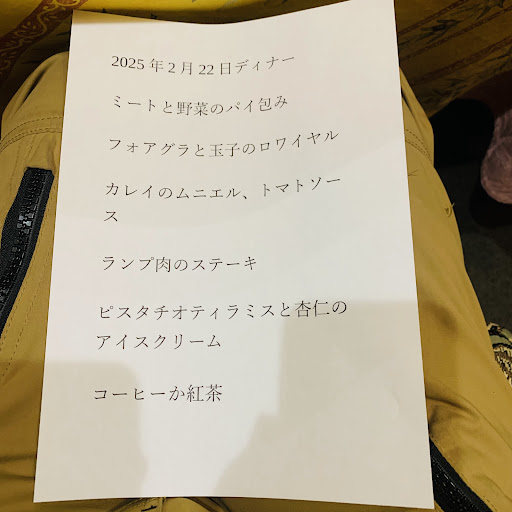 2025年2月22日ディナー
ミートと野菜のパイ包み
フォアグラと玉子のロワイヤル
カレイのムニエル、トマトソー
ス
ランプ肉のステーキ
ピスタチオティラミスと杏仁の
アイスクリーム
コーヒーか紅茶